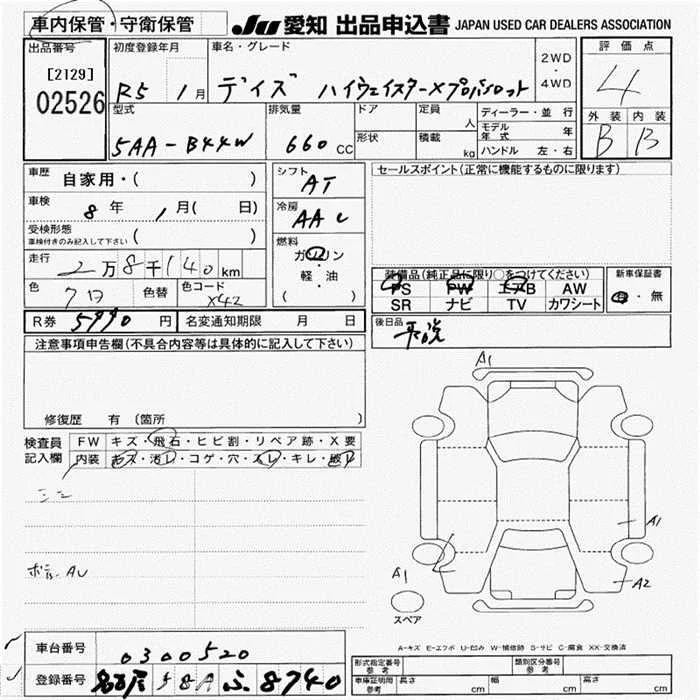 車内保管・守衛保管
JU 愛知 出品申込書 JAPAN USED CAR DEALERS ASSOCIATION
出品番号
[2129]
02526
初度登録年月
R5 1月
車名・グレード
デイズ ハイウェイスターXプロパイロット
2WD・4WD
評価点
4
外装 内装
B B
型式
5AA-B44W
排気量
660 CC
ドア
形状
定員 人
積載 kg
ディーラー・並行
モデル年式 年
ハンドル 左・右
車歴 自家用・( )
車検 8年 1月( 日)
受検形態
車検付きのみ記入して下さい ( )
走行 2万8千140km
色 色替
色コード X42
R券 5990円
名変通知期限 月 日
シフト AT
冷房 AAC
燃料
ガソリン・軽油
( )
セールスポイント(正常に機能するものに限ります)
装備品(純正品に限り○をつけてください)
PS PW エアB AW
SR ナビ TV カワシート
新車保証書
有・無
後日品
取説
注意事項申告欄(不具合内容等は具体的に記入して下さい)
修復歴 有(箇所 )
検査員記入欄
FW キズ・飛石・ヒビ割・リペア跡・X要
内装 キズ・汚レ・コゲ・穴・スレ・キレ・破レ
A1
A1
A1
A2
スペア
A-キズ E-エクボ U-凹み W-補修跡 S-サビ C-腐食 XX-交換済
車台番号 0300520
登録番号 名古屋 58A ち 8740
形式指定番号 参考
類別区分番号 参考
車庫証明用 参考 長さ cm 幅 cm 高さ cm